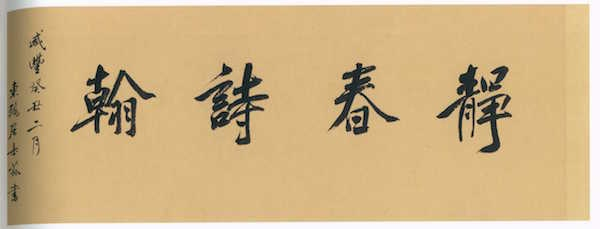 靜春詩翰
咸豐癸丑二月
東 居士 書